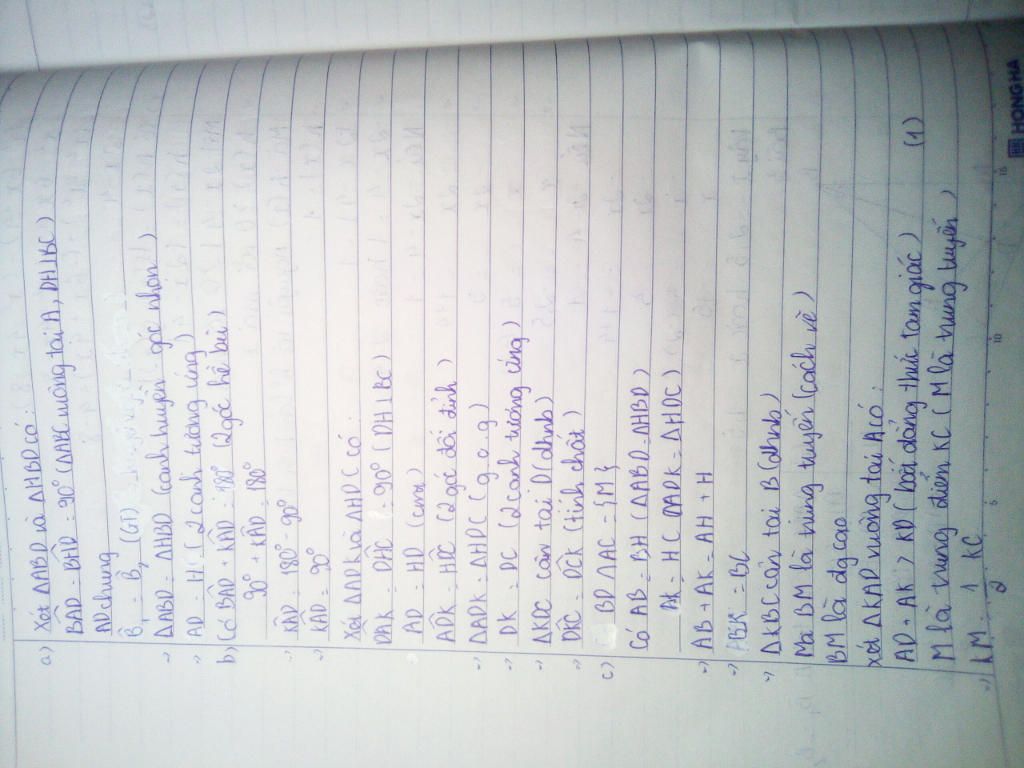 a) Xét ΔABD và ΔHBD có:
BÂD = BĤD = 90° (ΔABC vuông tại A, DH⊥BC)
AD chung
B̂₁ = B̂₂ (GT)
=> ΔABD = ΔHBD (cạnh huyền góc nhọn)
=> AD = HD (2 cạnh tương ứng)
b) Có BÂD + KÂD = 180° (2 góc kề bù)
90° + KÂD = 180°
=> KÂD = 180° - 90°
=> KÂD = 90°
Xét ΔADK và ΔHDC có
DÂK = DĤC = 90° (DH⊥BC)
AD = HD (cmx)
AD̂K = HD̂C (2 góc đối đỉnh)
=> ΔADK = ΔHDC (g.c.g)
=> DK = DC (2 cạnh tương ứng)
=> ΔKDC cân tại D (dhnb)
=> DK̂C = DĈK (tính chất)
c) BD ∩ AC = {M}
Có AB = BH (ΔABD = ΔHBD)
AK = HC (ΔADK = ΔHDC)
=> AB + AK = AH + H
=> BK = BC
=> ΔKBC cân tại B (dhnb)
Mà BM là trung tuyến (cách vẽ)
BM là đg cao
Xét ΔKAD vuông tại A có:
AD + AK > KD (bất đẳng thức tam giác) (1)
M là trung điểm KC (M là trung tuyến)
=> KM = 1 KC
2
HONG HA
5
10
15